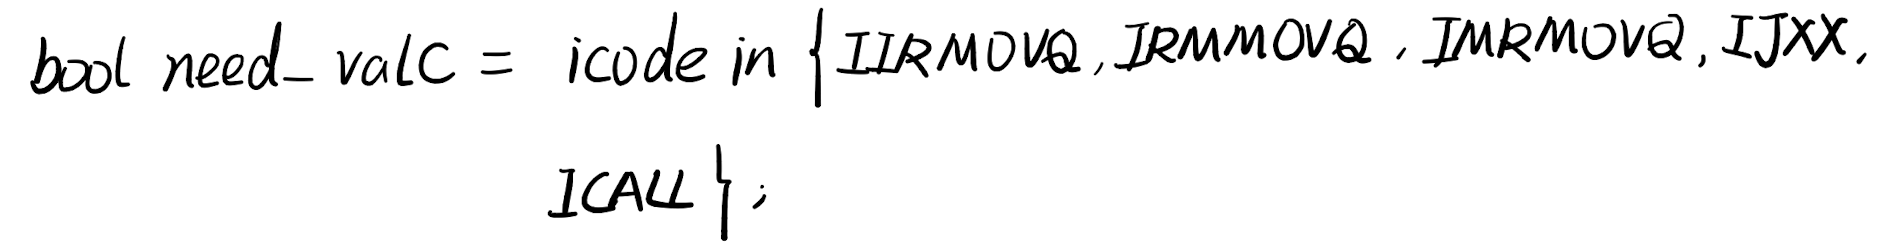 bool need_valC = icode in {IIRMOVQ, IRMMOVQ, IMRMOVQ, IJXX,
ICALL};